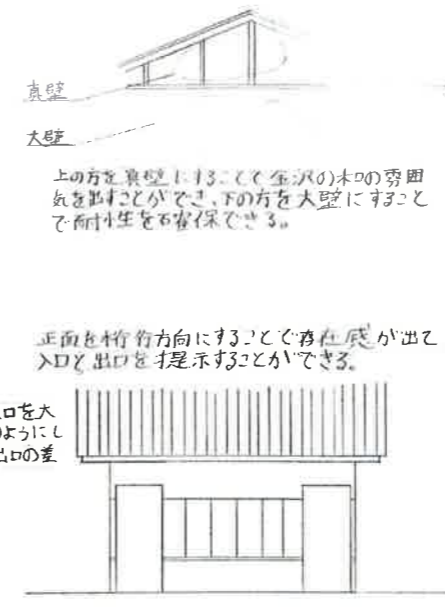 真壁
大壁
上の方を真壁にすることで金沢の和の雰囲
気を出すことができ、下の方を大壁にすること
で耐久性を確保できる。
正面を桁行方向にすることで存在感が出て
入口と出口を提示することができる。
口を大
のようにし
出口の差